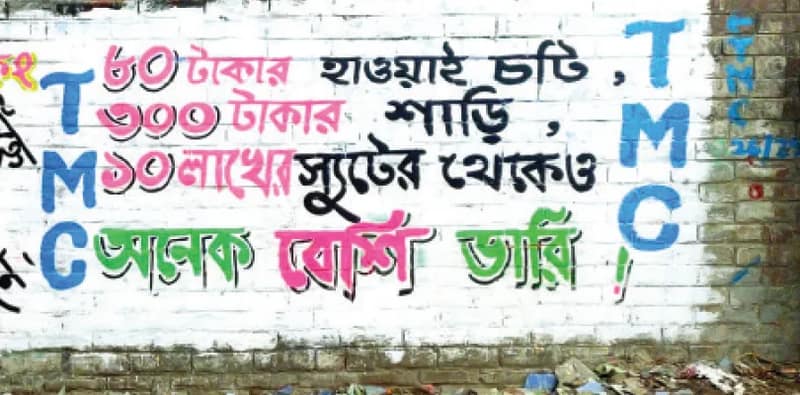 TMC
৮০ টাকার হাওয়াই চটি,
৩০০ টাকার শাড়ি,
১০ লাখের স্যুটের থেকেও
অনেক বেশি ভারি !
TMC